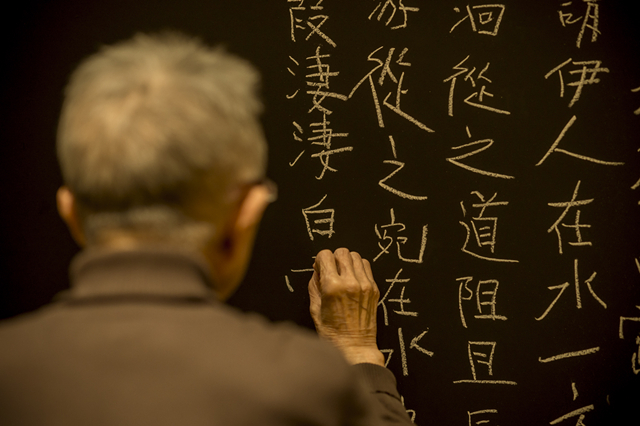 伊人在水一
洄從之道阻且
游從之宛在水
葭淒淒白